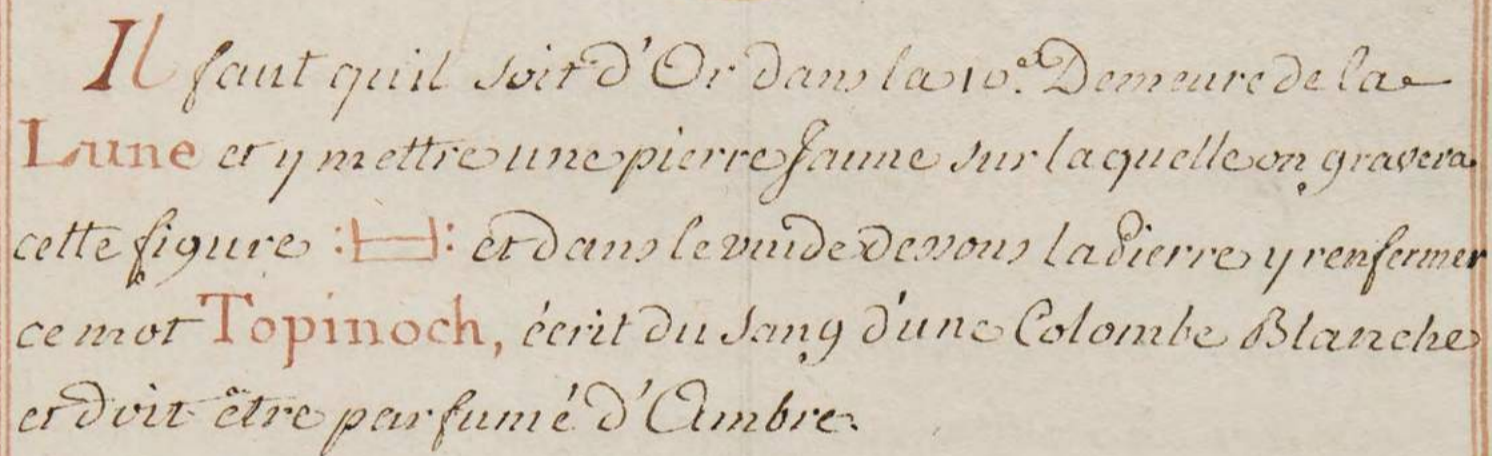 Il faut qu'il soit d'Or dans la 10.e Demeure de la
Lune et y mettre une pierre Jaune sur laquelle on gravera
cette figure : : et dans le vuide dessous la Pierre y renfermer
ce mot Topinoch, écrit du Sang d'une Colombe Blanche
et doit être parfumé d'Ambre.